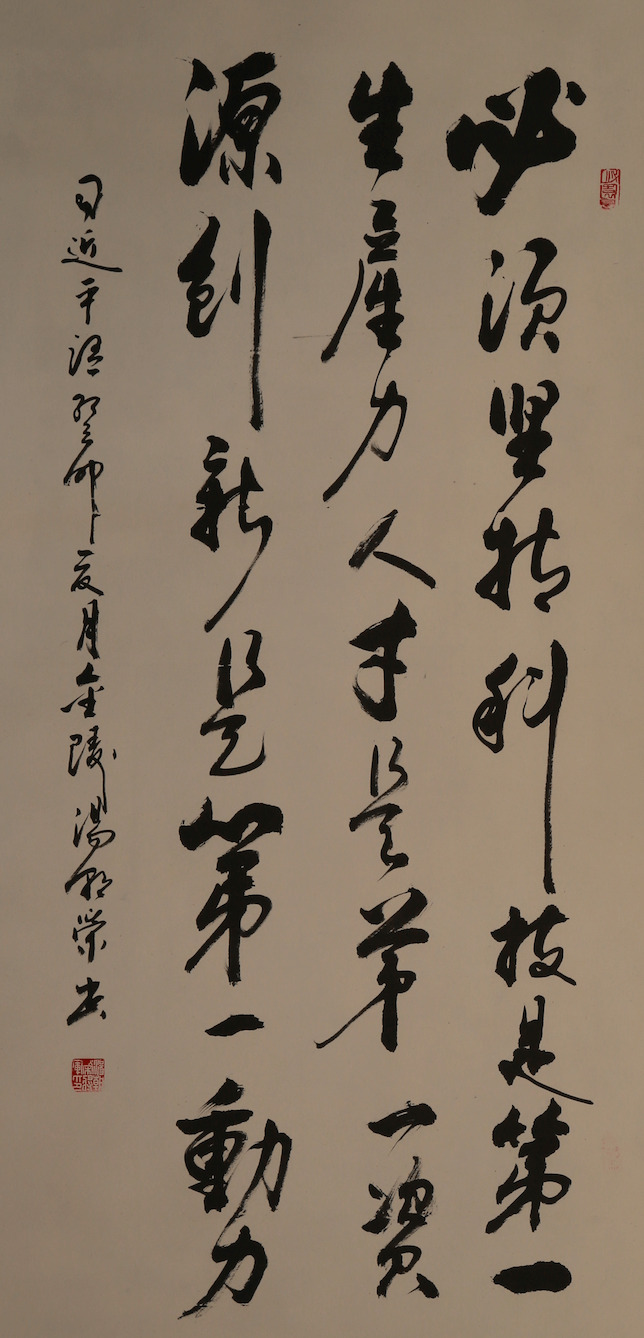 必须坚持科技是第一
生產力人才是第一資
源創新是第一動力
习近平語癸卯夏月金陵湯朝榮书